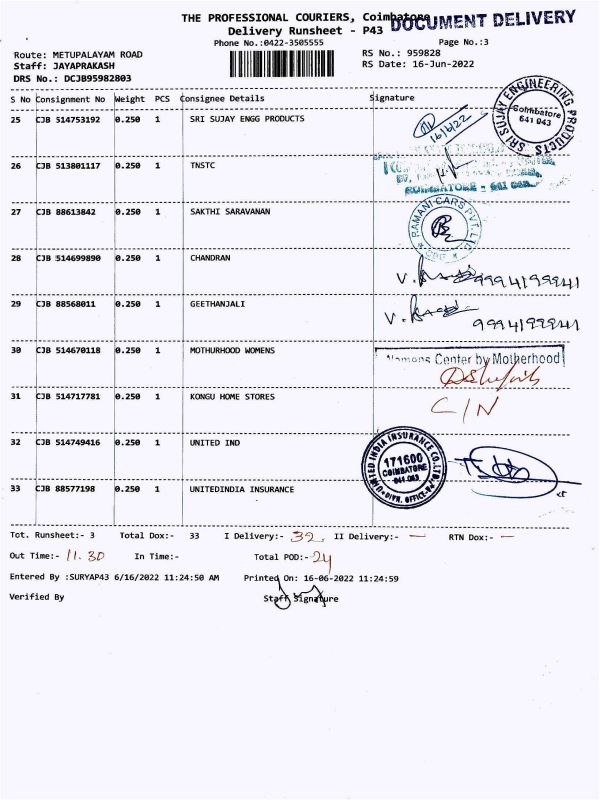 THE PROFESSIONAL COURIERS, Coimbatore
DOCUMENT DELIVERY
Delivery Runsheet - P43
Phone No.:0422-3505555
Page No.:3
Route: METUPALAYAM ROAD
RS No.: 959828
Staff: JAYAPRAKASH
RS Date: 16-Jun-2022
DRS No.: DCJB95982803
S No Consignment No Weight PCS Consignee Details Signature
25 CJB 514753192 0.250 1 SRI SUJAY ENGG PRODUCTS
16/6/22
SRI SUJAY ENGINEERING PRODUCTS
Coimbatore
641 043
26 CJB 513801117 0.250 1 TNSTC
COIMBATORE - 641
27 CJB 88613842 0.250 1 SAKTHI SARAVANAN
RAMANI CARS PVT. LTD.
28 CJB 514699890 0.250 1 CHANDRAN
V. 9994199941
29 CJB 88568011 0.250 1 GEETHANJALI
V. 9994199941
30 CJB 514670118 0.250 1 MOTHURHOOD WOMENS
Womens Center by Motherhood
31 CJB 514717781 0.250 1 KONGU HOME STORES
C/N
32 CJB 514749416 0.250 1 UNITED IND
UNITED INDIA INSURANCE CO. LTD.
171600
COIMBATORE
641 043
DIVN. OFFICE
33 CJB 88577198 0.250 1 UNITEDINDIA INSURANCE
Tot. Runsheet:- 3 Total Dox:- 33 I Delivery:- 32 II Delivery:- — RTN Dox:- —
Out Time:- 11.30 In Time:- Total POD:- 24
Entered By :SURYAP43 6/16/2022 11:24:50 AM Printed On: 16-06-2022 11:24:59
Verified By Staff Signature